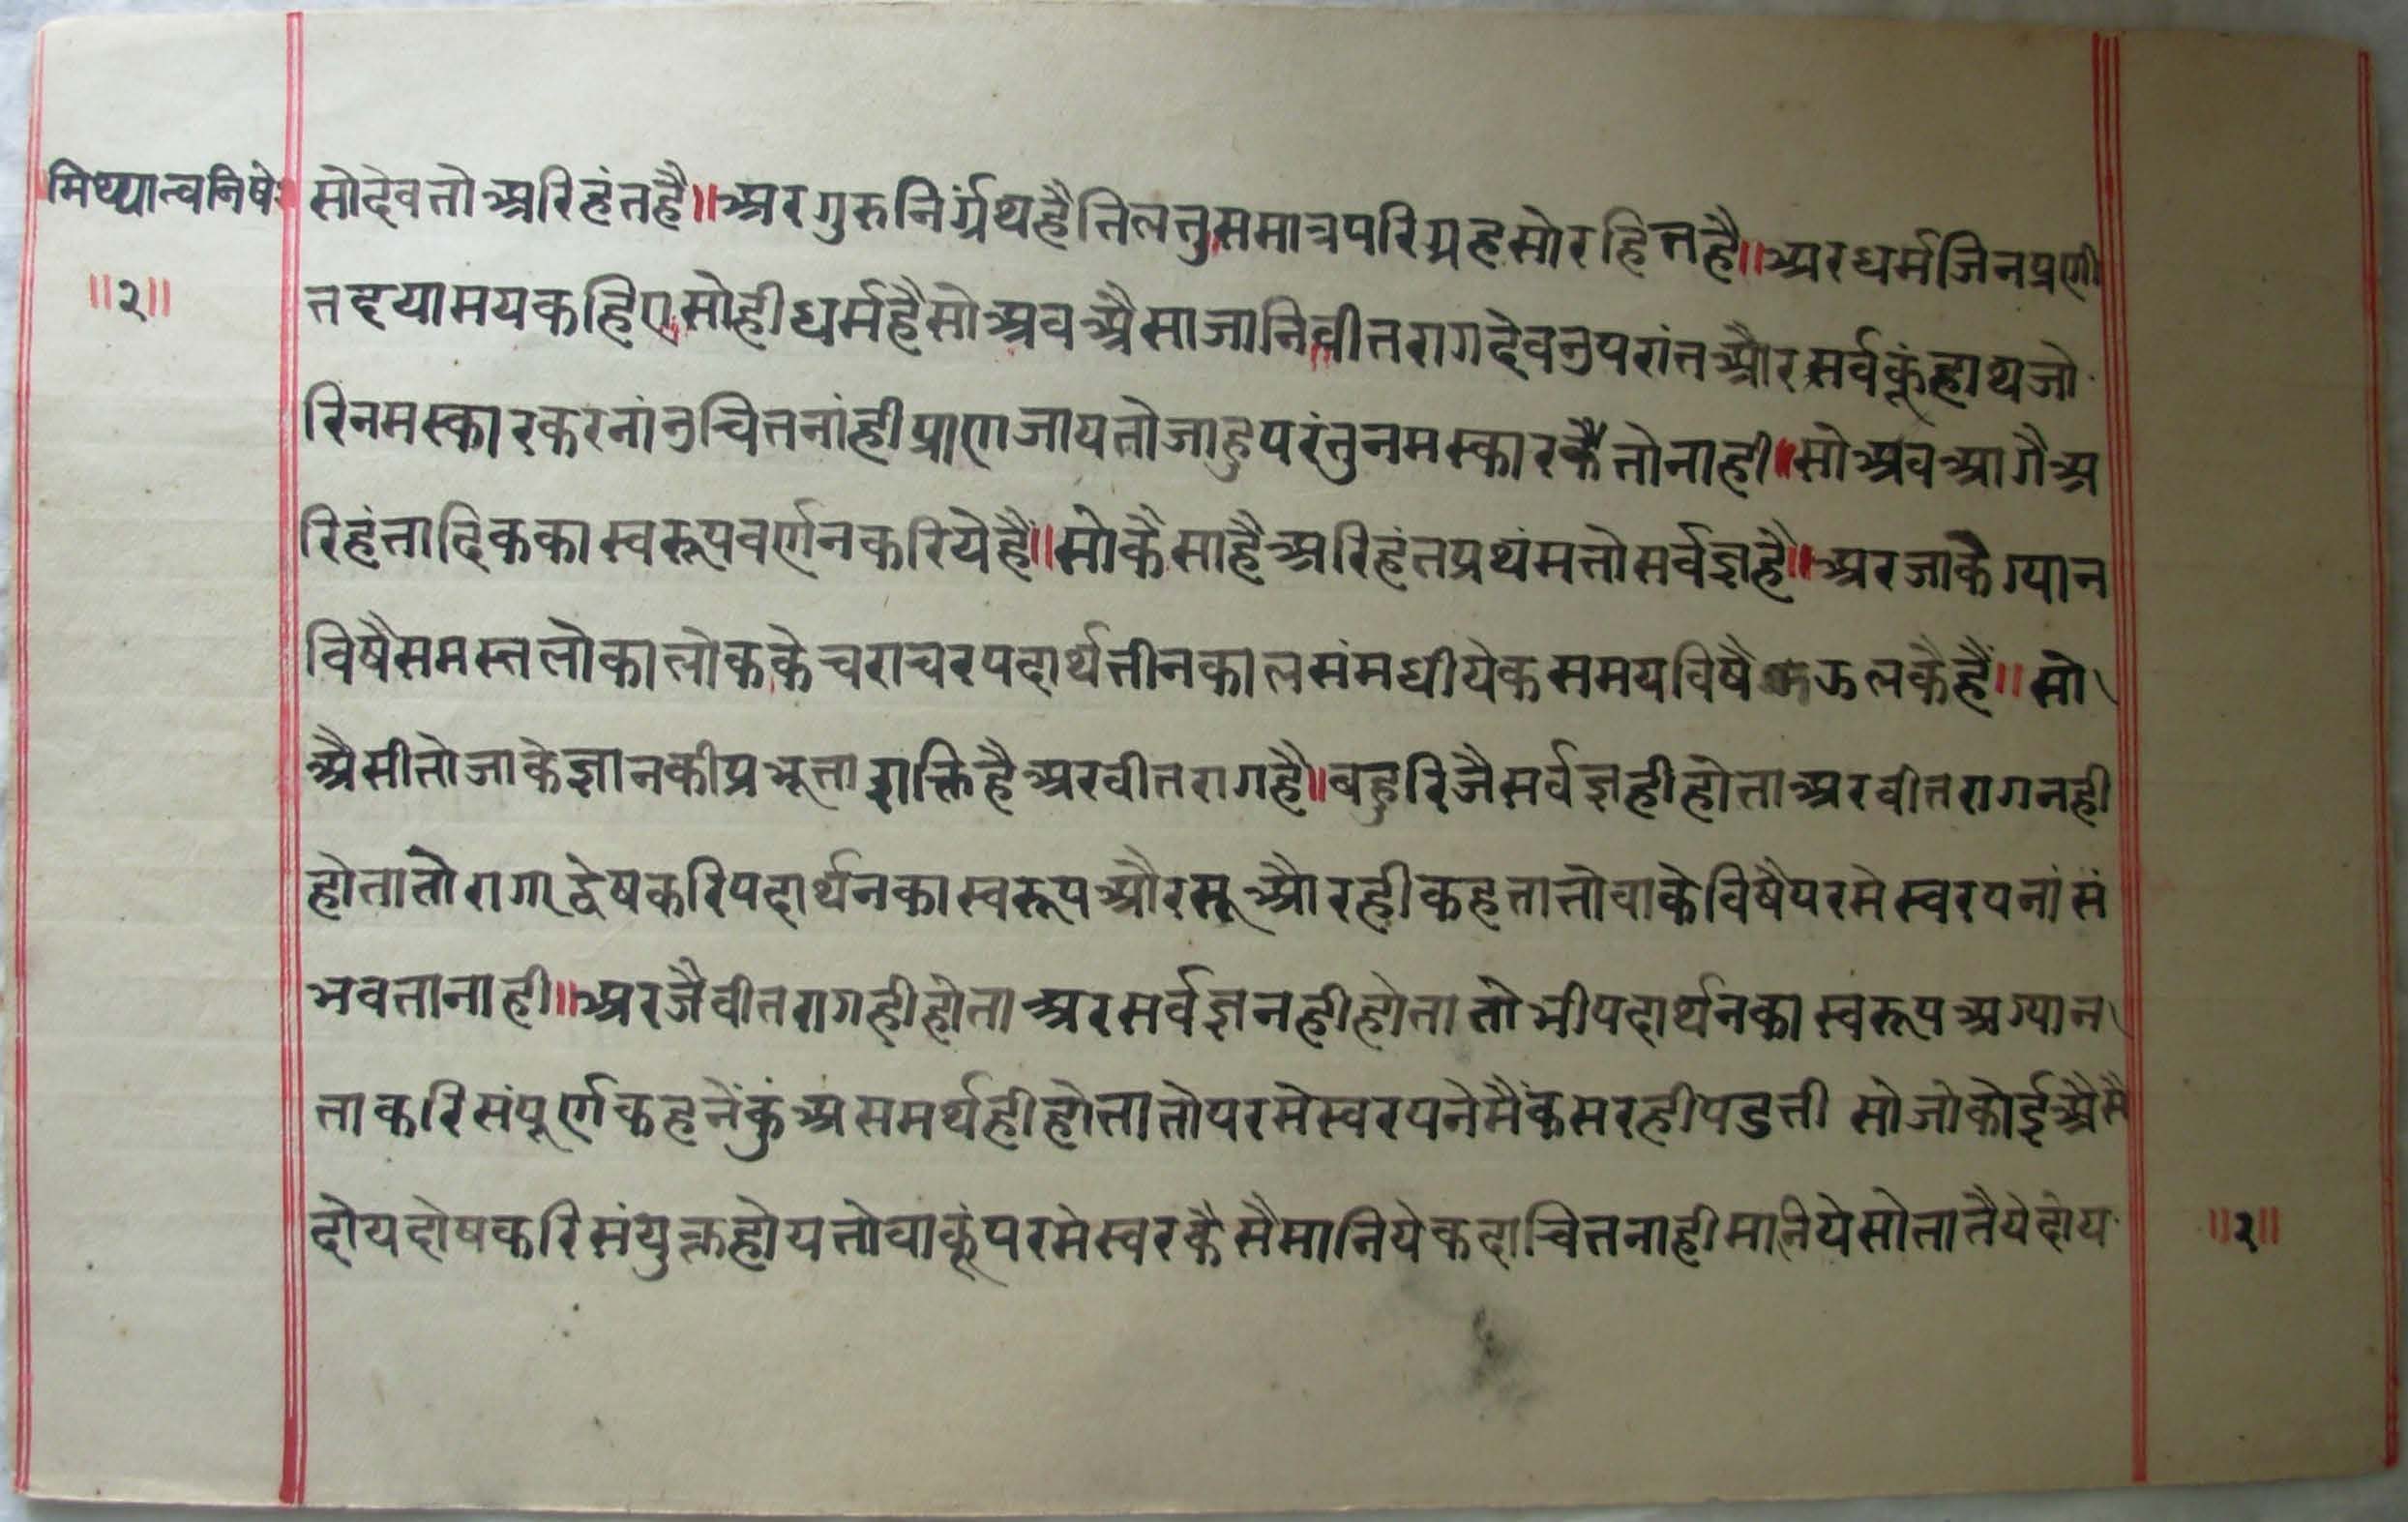 मिथ्यात्वनिषे
॥२॥
सोदेवतोअरिहंतहै॥अरगुरुनिर्ग्रंथहैतिलतुसमात्रपरिग्रहसोरहितहै॥अरधर्मजिनप्रणी
तदयामयकहिएसोहीधर्महैसोअवअैसाजानिवीतरागदेवउपरांतऔरसर्वकूंहाथजो
रिनमस्कारकरनांउचितनांहीप्राणजायतोजाहुपरंतुनमस्कारकैतोनाही॥सोअवआगैअ
रिहंतादिककास्वरूपवर्णनकरियेहैं॥सोकैसाहैअरिहंतप्रथंमतोसर्वज्ञहै॥अरजाकेग्यान
विषैसमस्तलोकालोककेचराचरपदार्थतीनकालसंमधीयेकसमयविषैऊलकैहैं॥सो
अैसीतोजाकेज्ञानकीप्रभूताशक्तिहैअरवीतरागहै॥बहुरिजैसर्वज्ञहीहोताअरवीतरागनही
होतातोरागाद्वेषकरिपदार्थनकास्वरूपऔरसूऔरहीकहतातोवाकेविषैपरमेस्वरपनांसं
भवतानाही॥अरजैवीतरागहीहोताअरसर्वज्ञनहीहोतातोभीपदार्थनकास्वरूपअग्यान
ताकरिसंपूर्णकहनेंकुंअसमर्थहीहोतातोपरमेस्वरपनेमैंकसरहीपडती सोजोकोईअैसै
दोयदोषकरिसंयुक्तहोयतोवाकूंपरमेस्वरकैसैमानियेकदाचितनाहीमानियेसोतातैयेदोय
॥२॥